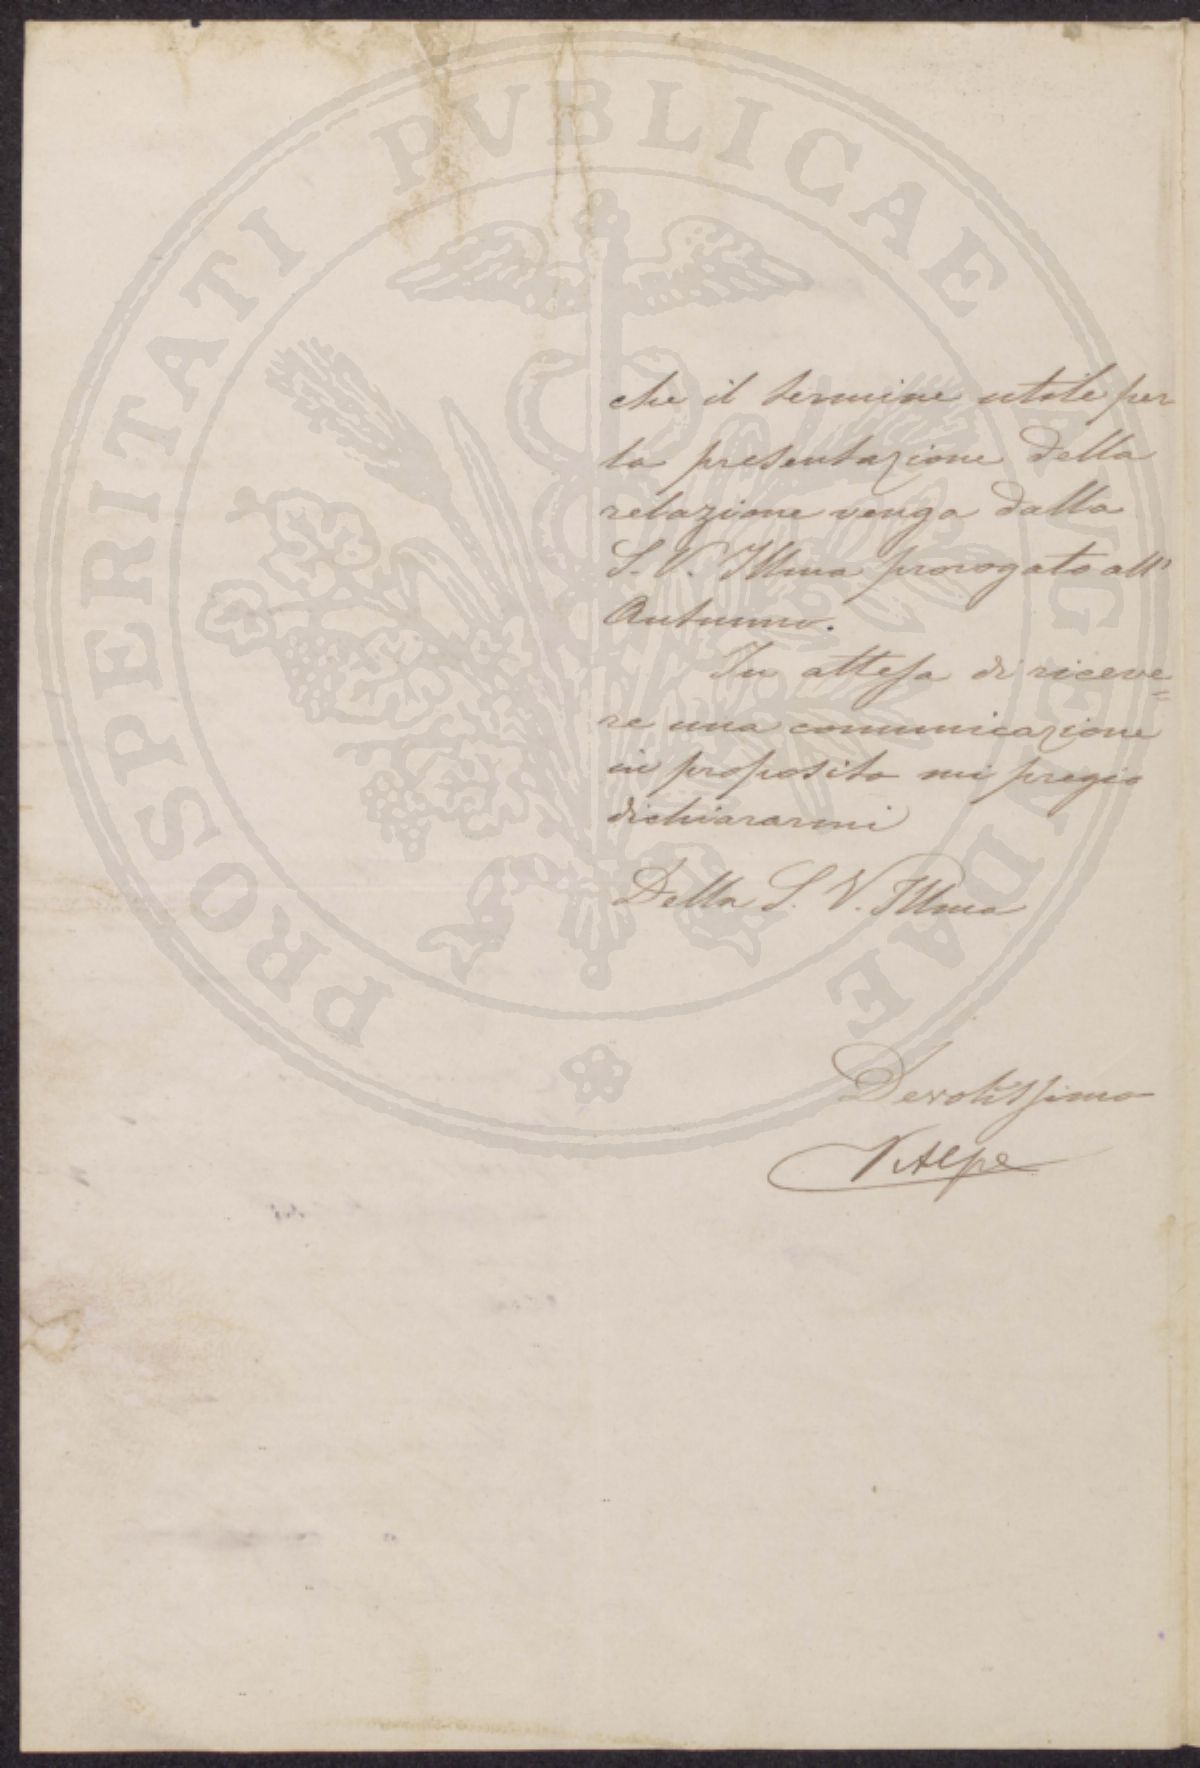 PROSPERITATI PVBLICAE AVGENDAE
che il termine utile per
la presentazione della
relazione venga dalla
S. V. Illma prorogato all'
Autunno.
In attesa di riceve=
re una comunicazione
in proposito mi pregio
dichiararmi
Della S. V. Illma
Devotissimo
V Alpe